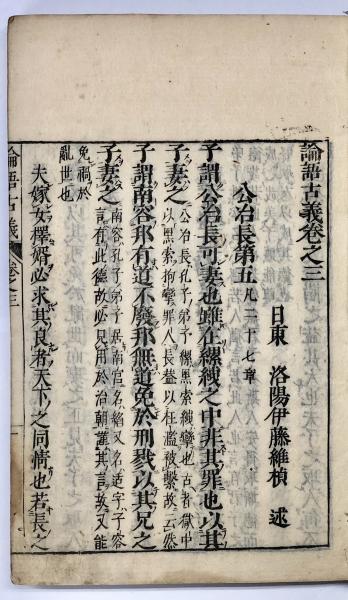 論語古義卷之三
日東　洛陽伊藤維楨　述
公冶長第五凡二十七章
子謂公冶長可妻也雖在縲絏之中非其罪也以其
子妻之公冶長孔子弟子縲黑索絏攣也古者獄中
以黑索拘攣罪人長蓋以枉濫被繫故云然
子謂南容邦有道不廢邦無道免於刑戮以其兄之
子妻之南容孔子弟子居南宮名縚又名适字子容
言有此德故必見用於治朝謹其言故又能
免禍於
亂世也
夫嫁女擇婿必求其良者天下之同情也若長之
論語古義　卷之三